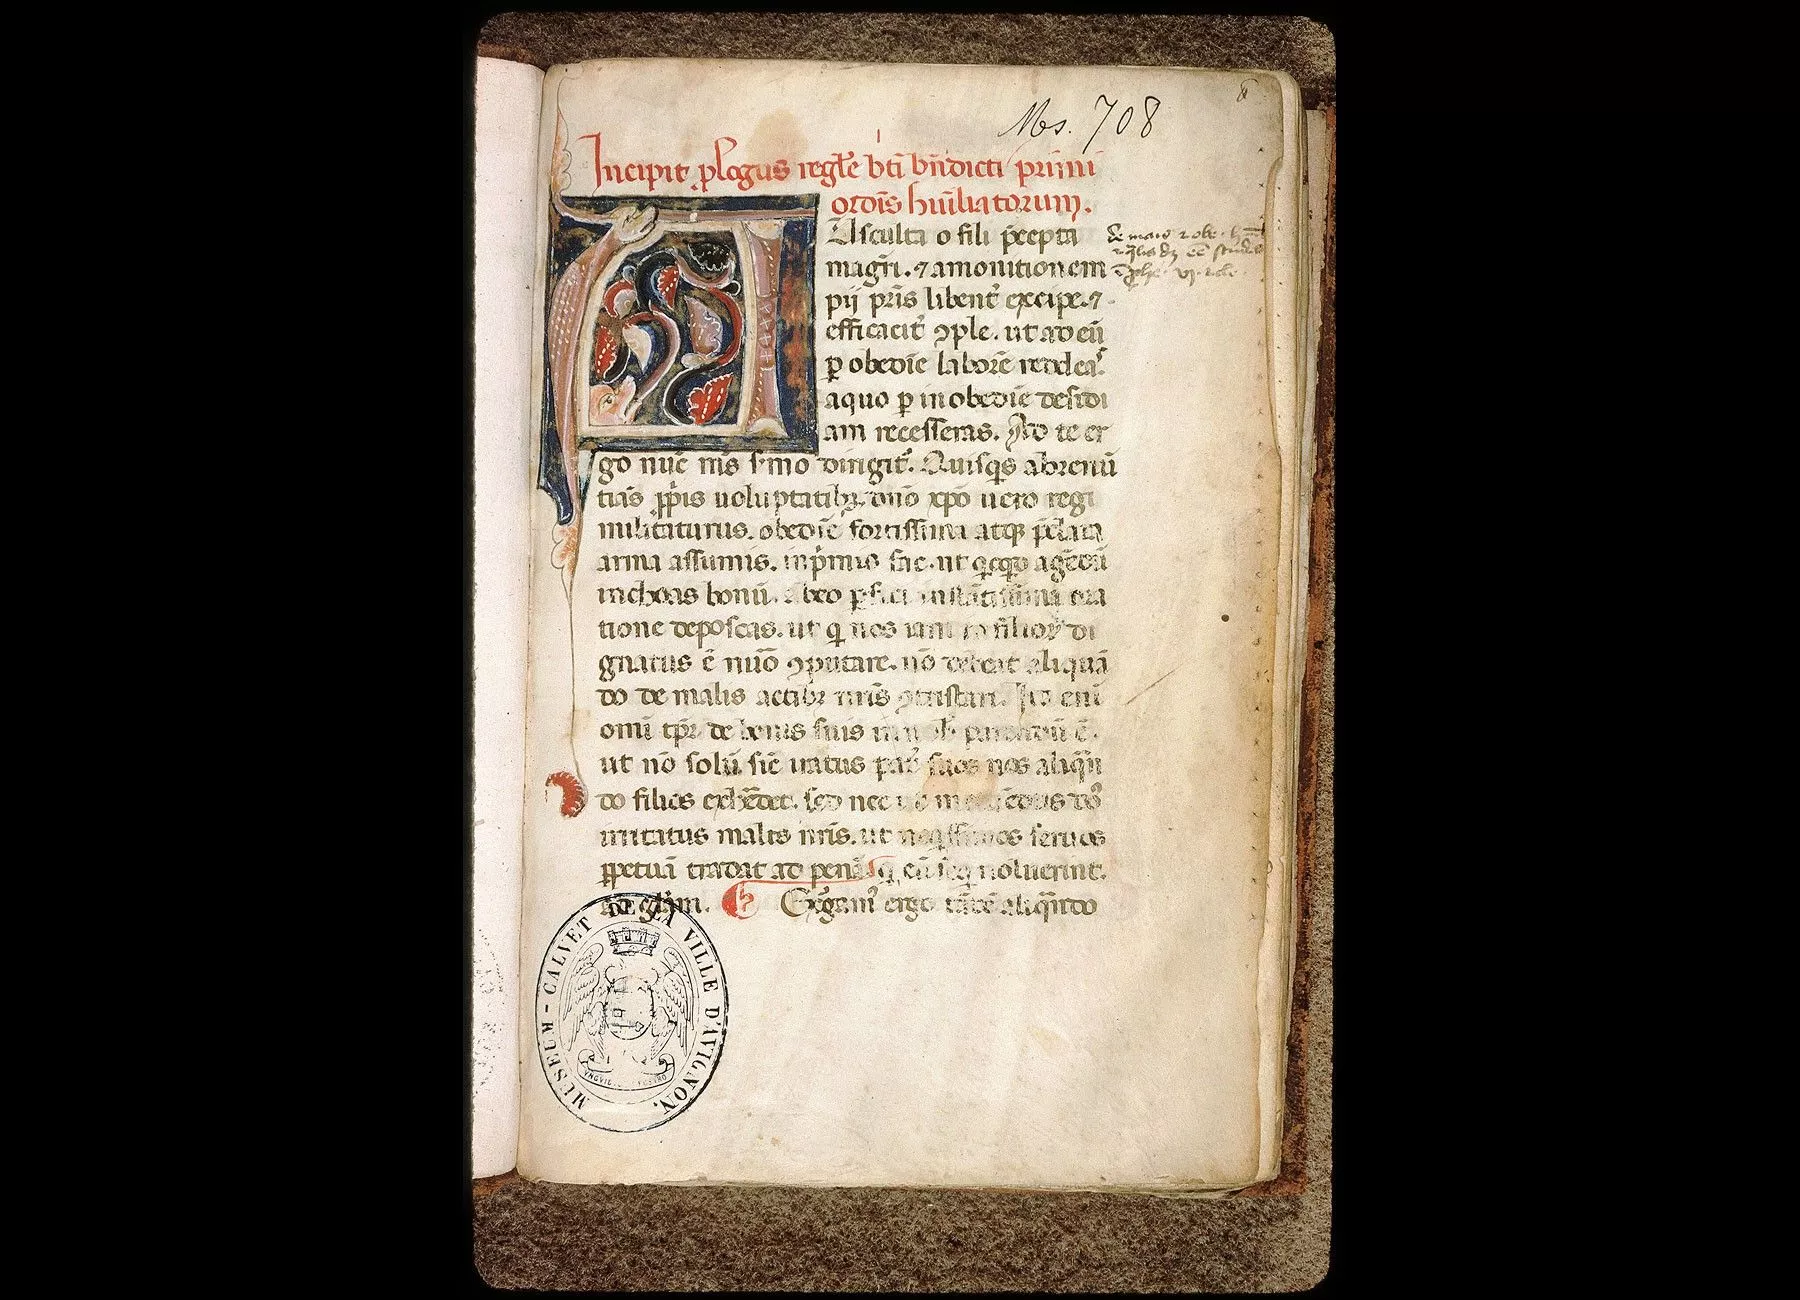 Ms. 708
Incipit plogus regłe bti bndicti primi
ordis huiliatorum.
AUsculta o fili pcepta
magri. ⁊ amonitionem
pij pris libent excipe. ⁊
efficacit ꝯple. ut ad eu
p obedie labore reddea
a quo p inobedie desidi
am recesseras. Ad te er
go nuc mis smo dirigit. Quisqs abrenu
tias ppis uoluptatibꝫ. dno xpo uero regi
militaturus. obedie fortissima atqꝫ pclara
arma assumis. inpmis fac. ut qcqd agedu
inchoas bonu. ab eo pfici instatissima ora
tione deposcas. ut q nos iam filioꝝ di
gnatus e nuo ꝯputare. no debeat aliqua
do de malis actibꝫ nris ꝯtristari. Ita eni
omi tpr de bonis suis in nob parendu e.
ut no solu sic iratus pat suos nos aliqn
do filios exhedet. sed nec ut metuedus dns
irritatus malis nris. ut neqssimos seruos
ppetua tradat ad pena q eu seq noluerint.
ad glam. Exgam ergo tade aliqndo
MUSEUM-CALVET DE LA VILLE D'AVIGNON.